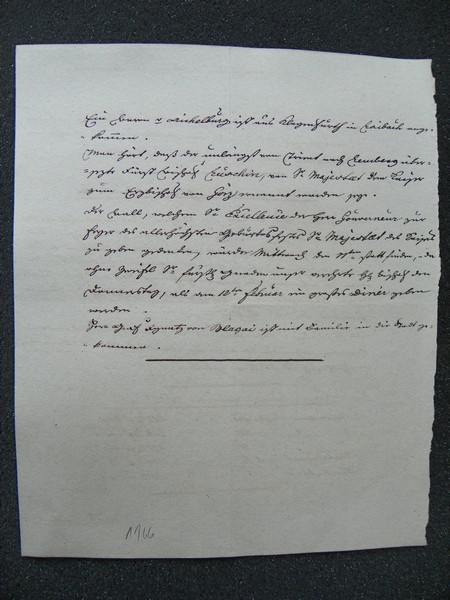 Ein Baron v Aichelburg ist aus Klagenfurth in Laibach ange-
kommen.
Man hört, daß der unlängst von Trient nach Lemberg über-
setzte Fürst Bischof Luschin, von Sr Majestaet dem Kaiser
zum Erzbischof von Görz ernannt worden sey.
Der Ball, welchen Se Excellenz der Herr Gouverneur zur
Feyer des allerhöchsten Geburtsfestes Sr Majestaet des Kaisers
zu geben gedenken, würde Mittwoch den 11ten statt finden, da
ohne Zweifel Se fürstl. Gnaden unser verehrte Bischof den
Donnerstag, als am 12ten Februar ein großes Diner geben
werden.
Herr Graf Ignatz von Blagai ist mit Familie in die Stadt ge-
kommen.
1166